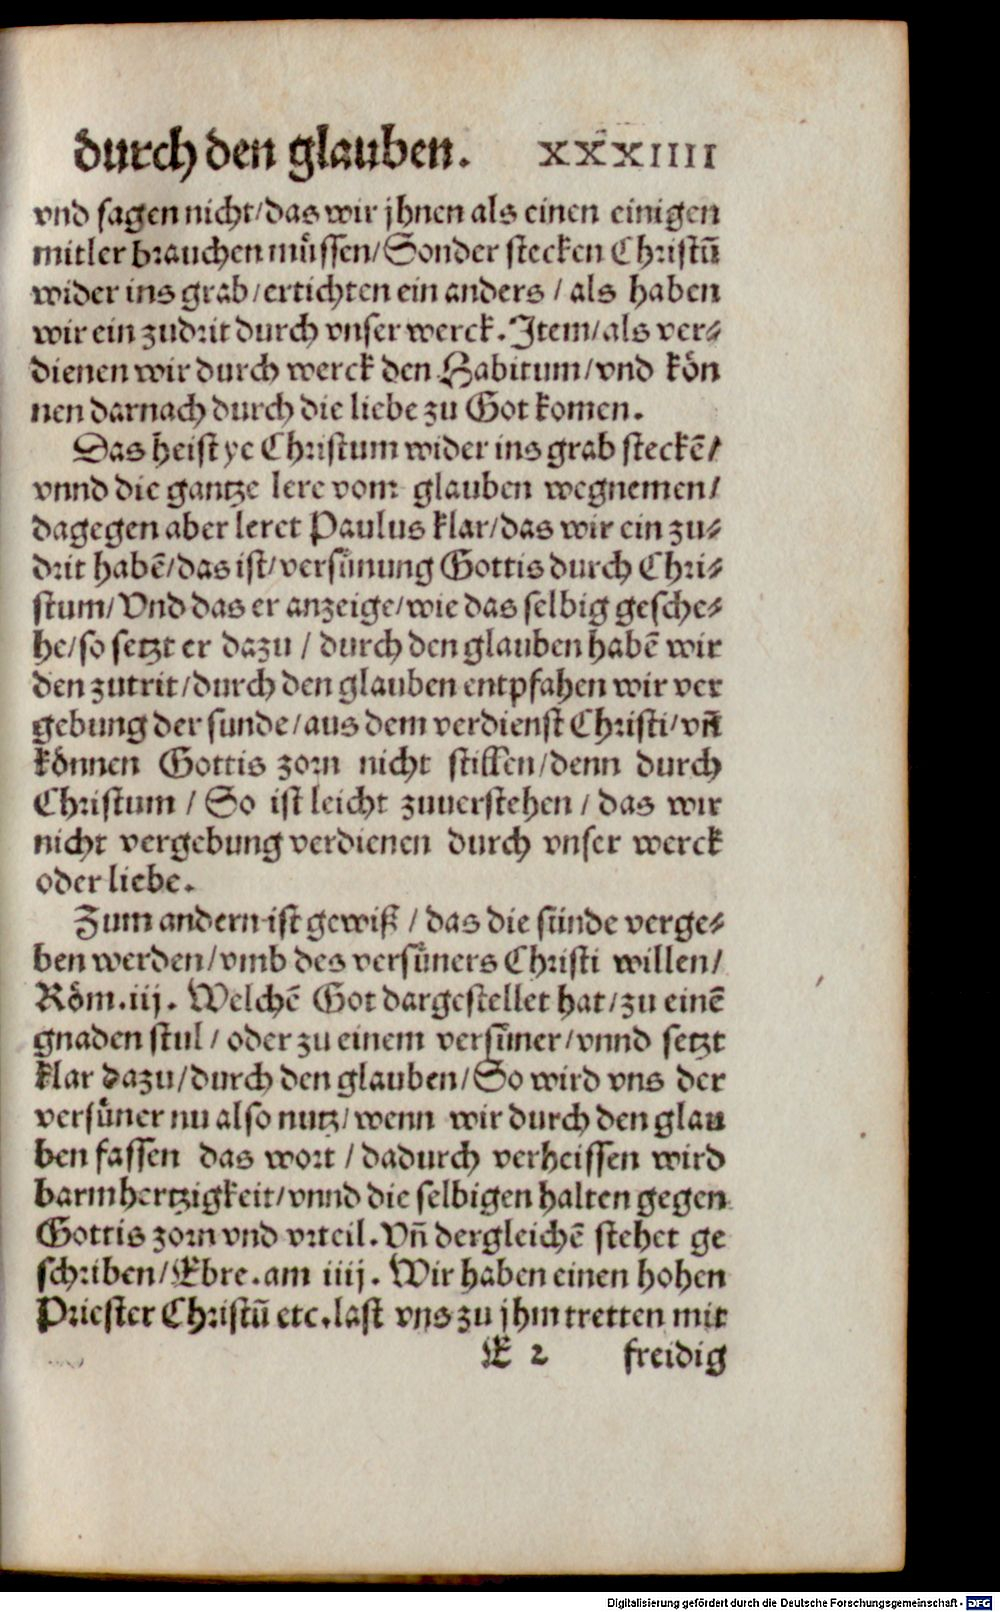 durch den glauben. XXXIIII
vnd sagen nicht/das wir jhnen als einen einigen
mitler brauchen muͤssen/Sonder stecken Christū
wider ins grab/ertichten ein anders / als haben
wir ein zudrit durch vnser werck. Item/als ver⸗
dienen wir durch werck den Habitum/vnd koͤn
nen darnach durch die liebe zu Got komen.
Das heist ye Christum wider ins grab steckē/
vnnd die gantze lere vom glauben wegnemen/
dagegen aber leret Paulus klar/das wir ein zu⸗
drit habē/das ist/versuͤnung Gottis durch Chri⸗
stum/Vnd das er anzeige/wie das selbig gesche⸗
he/so setzt er dazu / durch den glauben habē wir
den zutrit/durch den glauben entpfahen wir ver
gebung der sunde/aus dem verdienst Christi/vn̄
koͤnnen Gottis zorn nicht stillen/denn durch
Christum / So ist leicht zuuerstehen / das wir
nicht vergebung verdienen durch vnser werck
oder liebe.
Zum andern ist gewiß / das die suͤnde verge⸗
ben werden/vmb des versuͤners Christi willen/
Roͤm.iij. Welchē Got dargestellet hat/zu einē
gnaden stul / oder zu einem versuͤner/vnnd setzt
klar dazu/durch den glauben/So wird vns der
versuͤner nu also nutz/wenn wir durch den glau
ben fassen das wort / dadurch verheissen wird
barmhertzigkeit/vnnd die selbigen halten gegen
Gottis zorn vnd vrteil. Vn̄ dergleichē stehet ge
schriben/Ebre.am iiij. Wir haben einen hohen
Priester Christū etc.last vns zu jhm tretten mit
E 2 freidig
Digitalisierung gefördert durch die Deutsche Forschungsgemeinschaft - DFG